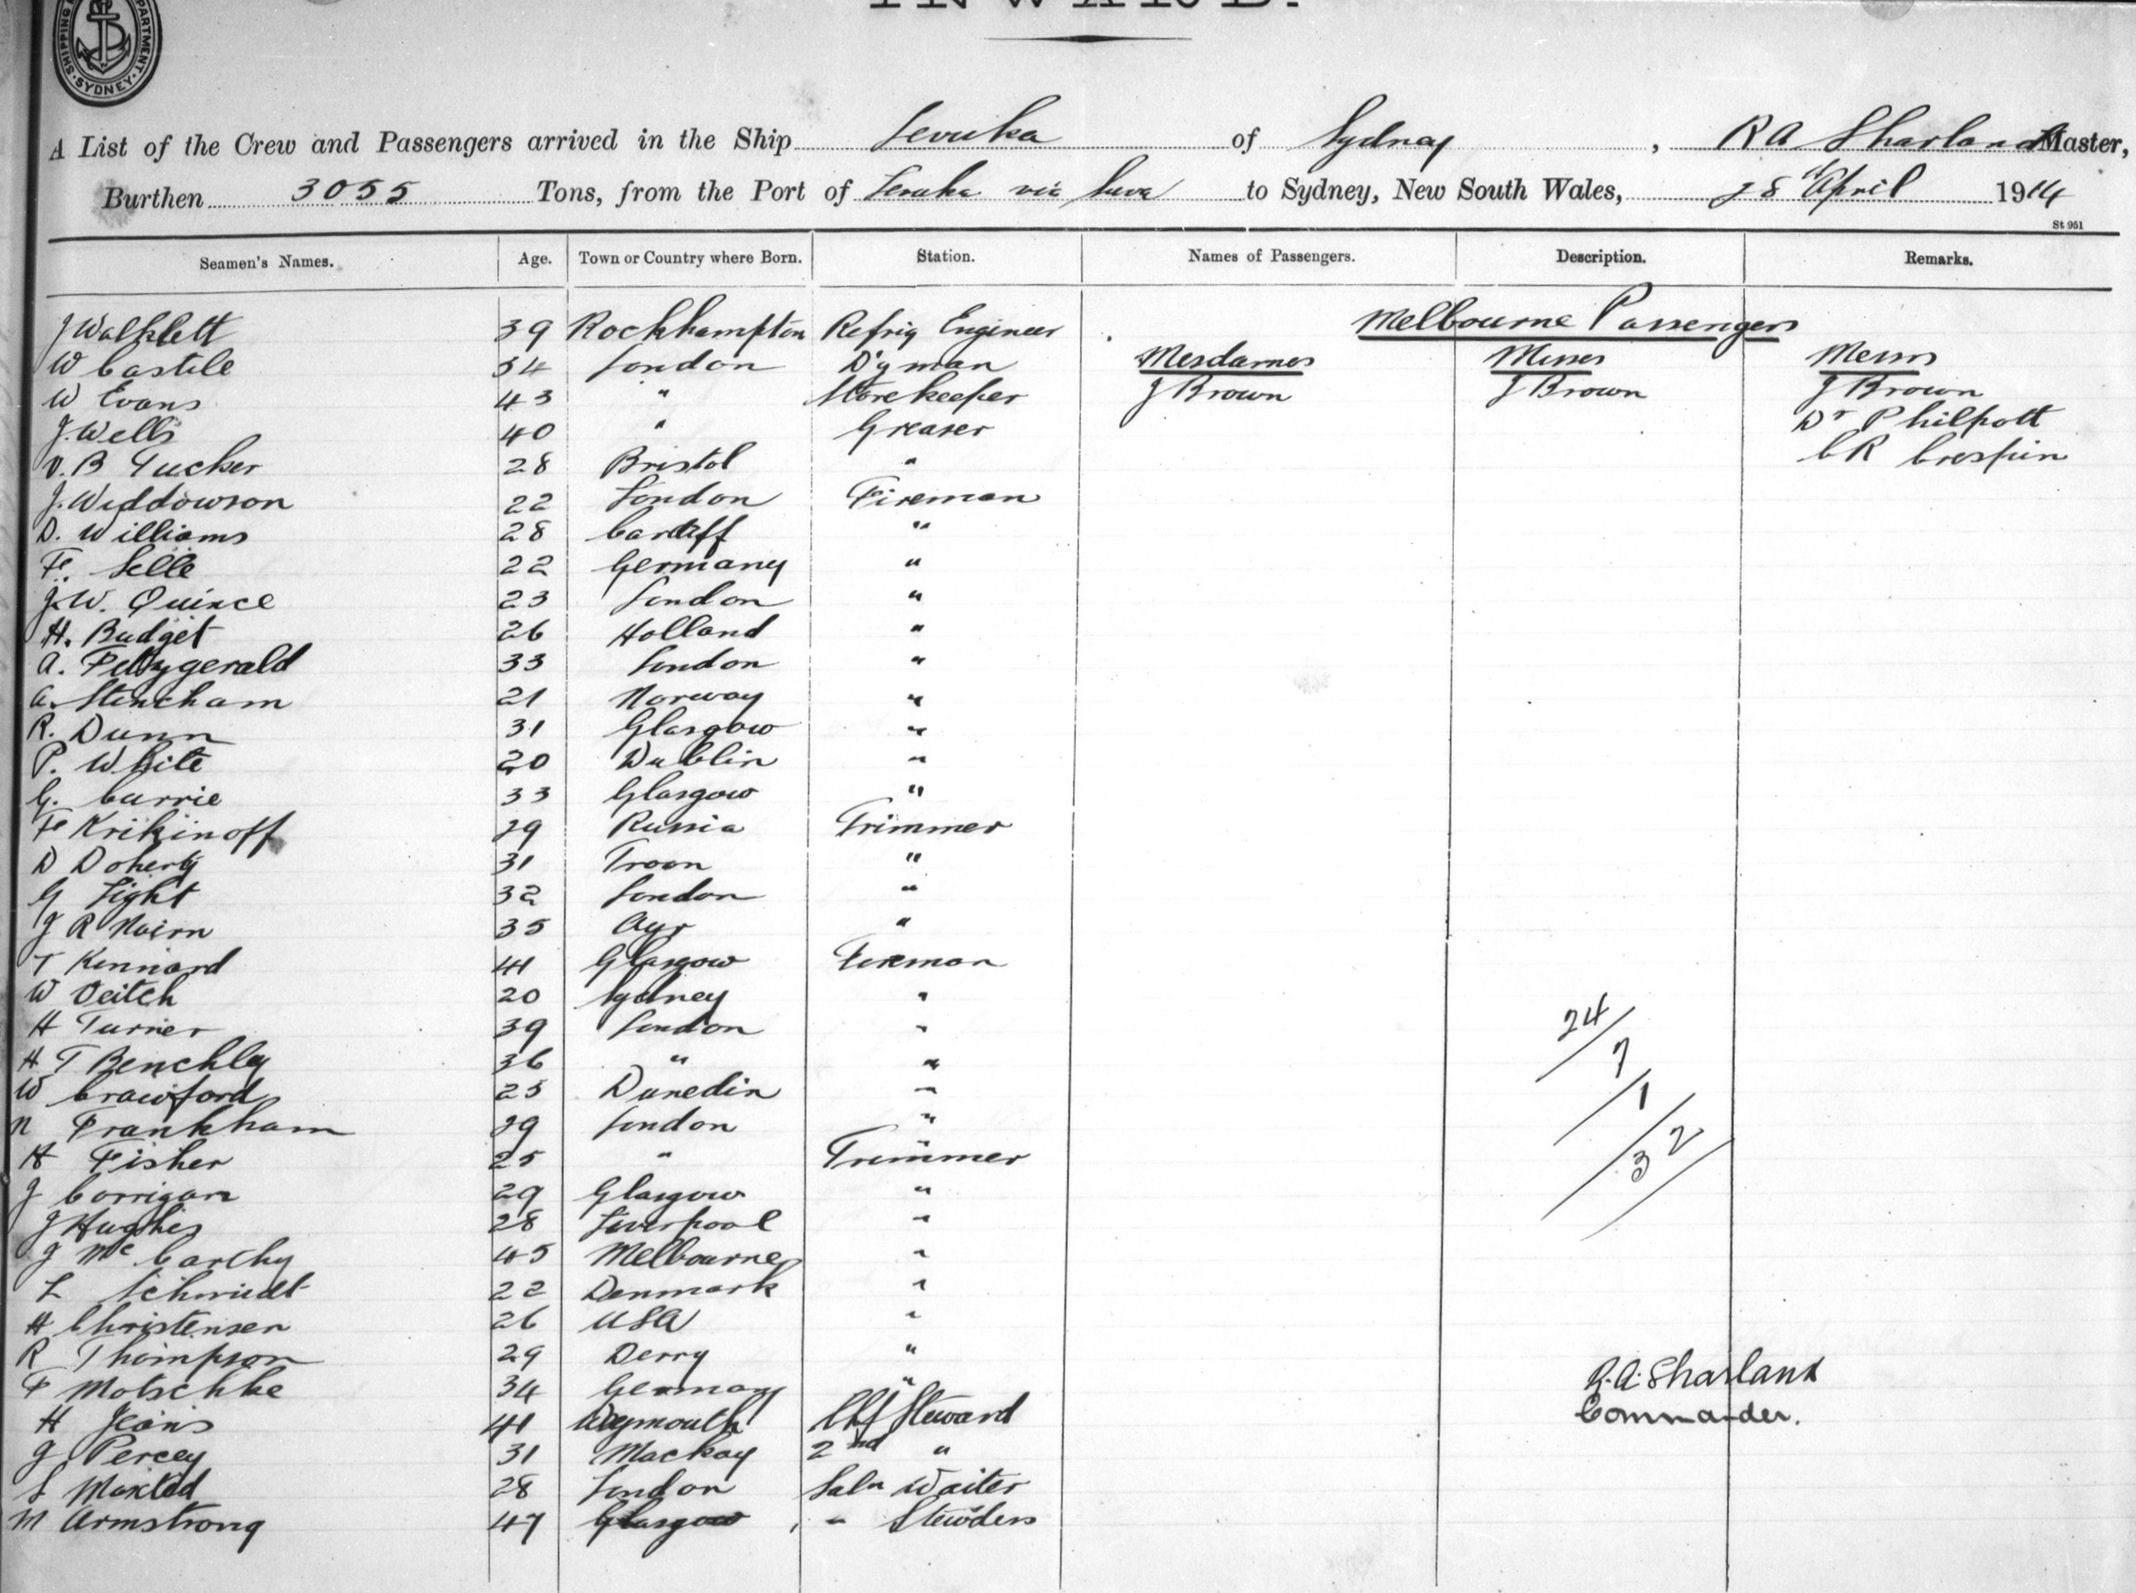 INWARD.
SHIPPING DEPARTMENT · SYDNEY ·
A List of the Crew and Passengers arrived in the Ship Levuka of Sydney, R A Sharland Master,
Burthen 3055 Tons, from the Port of Levuka via Suva to Sydney, New South Wales, 28 April 1914
St 951
Seamen's Names. Age. Town or Country where Born. Station. Names of Passengers. Description. Remarks.
Melbourne Passengers
J Walklett 39 Rockhampton Refrig Engineer
W Castile 34 London D'yman Mesdames Misses Messrs
W Evans 43 " Storekeeper J Brown J Brown J Brown
J. Wells 40 " Greaser Dr Philpott
V. B Tucker 28 Bristol " C R Crespin
J. Widdowson 22 London Fireman
D. Williams 28 Cardiff "
F. Selle 22 Germany "
J. W. Quince 23 London "
H. Budget 26 Holland "
A. Fitzgerald 33 London "
A. Stencham 21 Norway "
R. Dunn 31 Glasgow "
P. White 20 Dublin "
G. Currie 33 Glasgow "
F Krikinoff 29 Russia Trimmer
D Doherty 31 Troon "
G Light 32 London "
J R Nairn 35 Ayr "
T Kennard 41 Glasgow Fireman
W Veitch 20 Sydney "
H Turner 39 London "
H T Benchley 36 " "
W Crawford 25 Dunedin "
N Frankham 29 London "
H Fisher 25 " Trimmer
J Corrigan 29 Glasgow "
J Hughes 28 Liverpool "
J McCarthy 45 Melbourne "
L Schmidt 22 Denmark "
H Christensen 26 USA "
R Thompson 29 Derry "
F Motschke 34 Germany "
H Jeans 41 Weymouth Chf Steward
G Percey 31 Mackay 2nd "
S Maxted 28 London Saln Waiter
M Armstrong 47 Glasgow " Stewdess
24/7
/1
/32
R. A. Sharland
Commander.